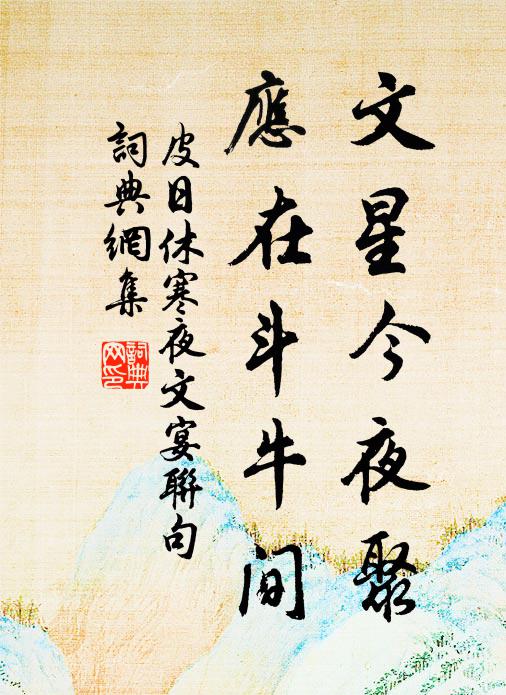 文星今夜聚
應在斗牛间
皮日休寒夜文宴聯句
詞典網集
詞典网印